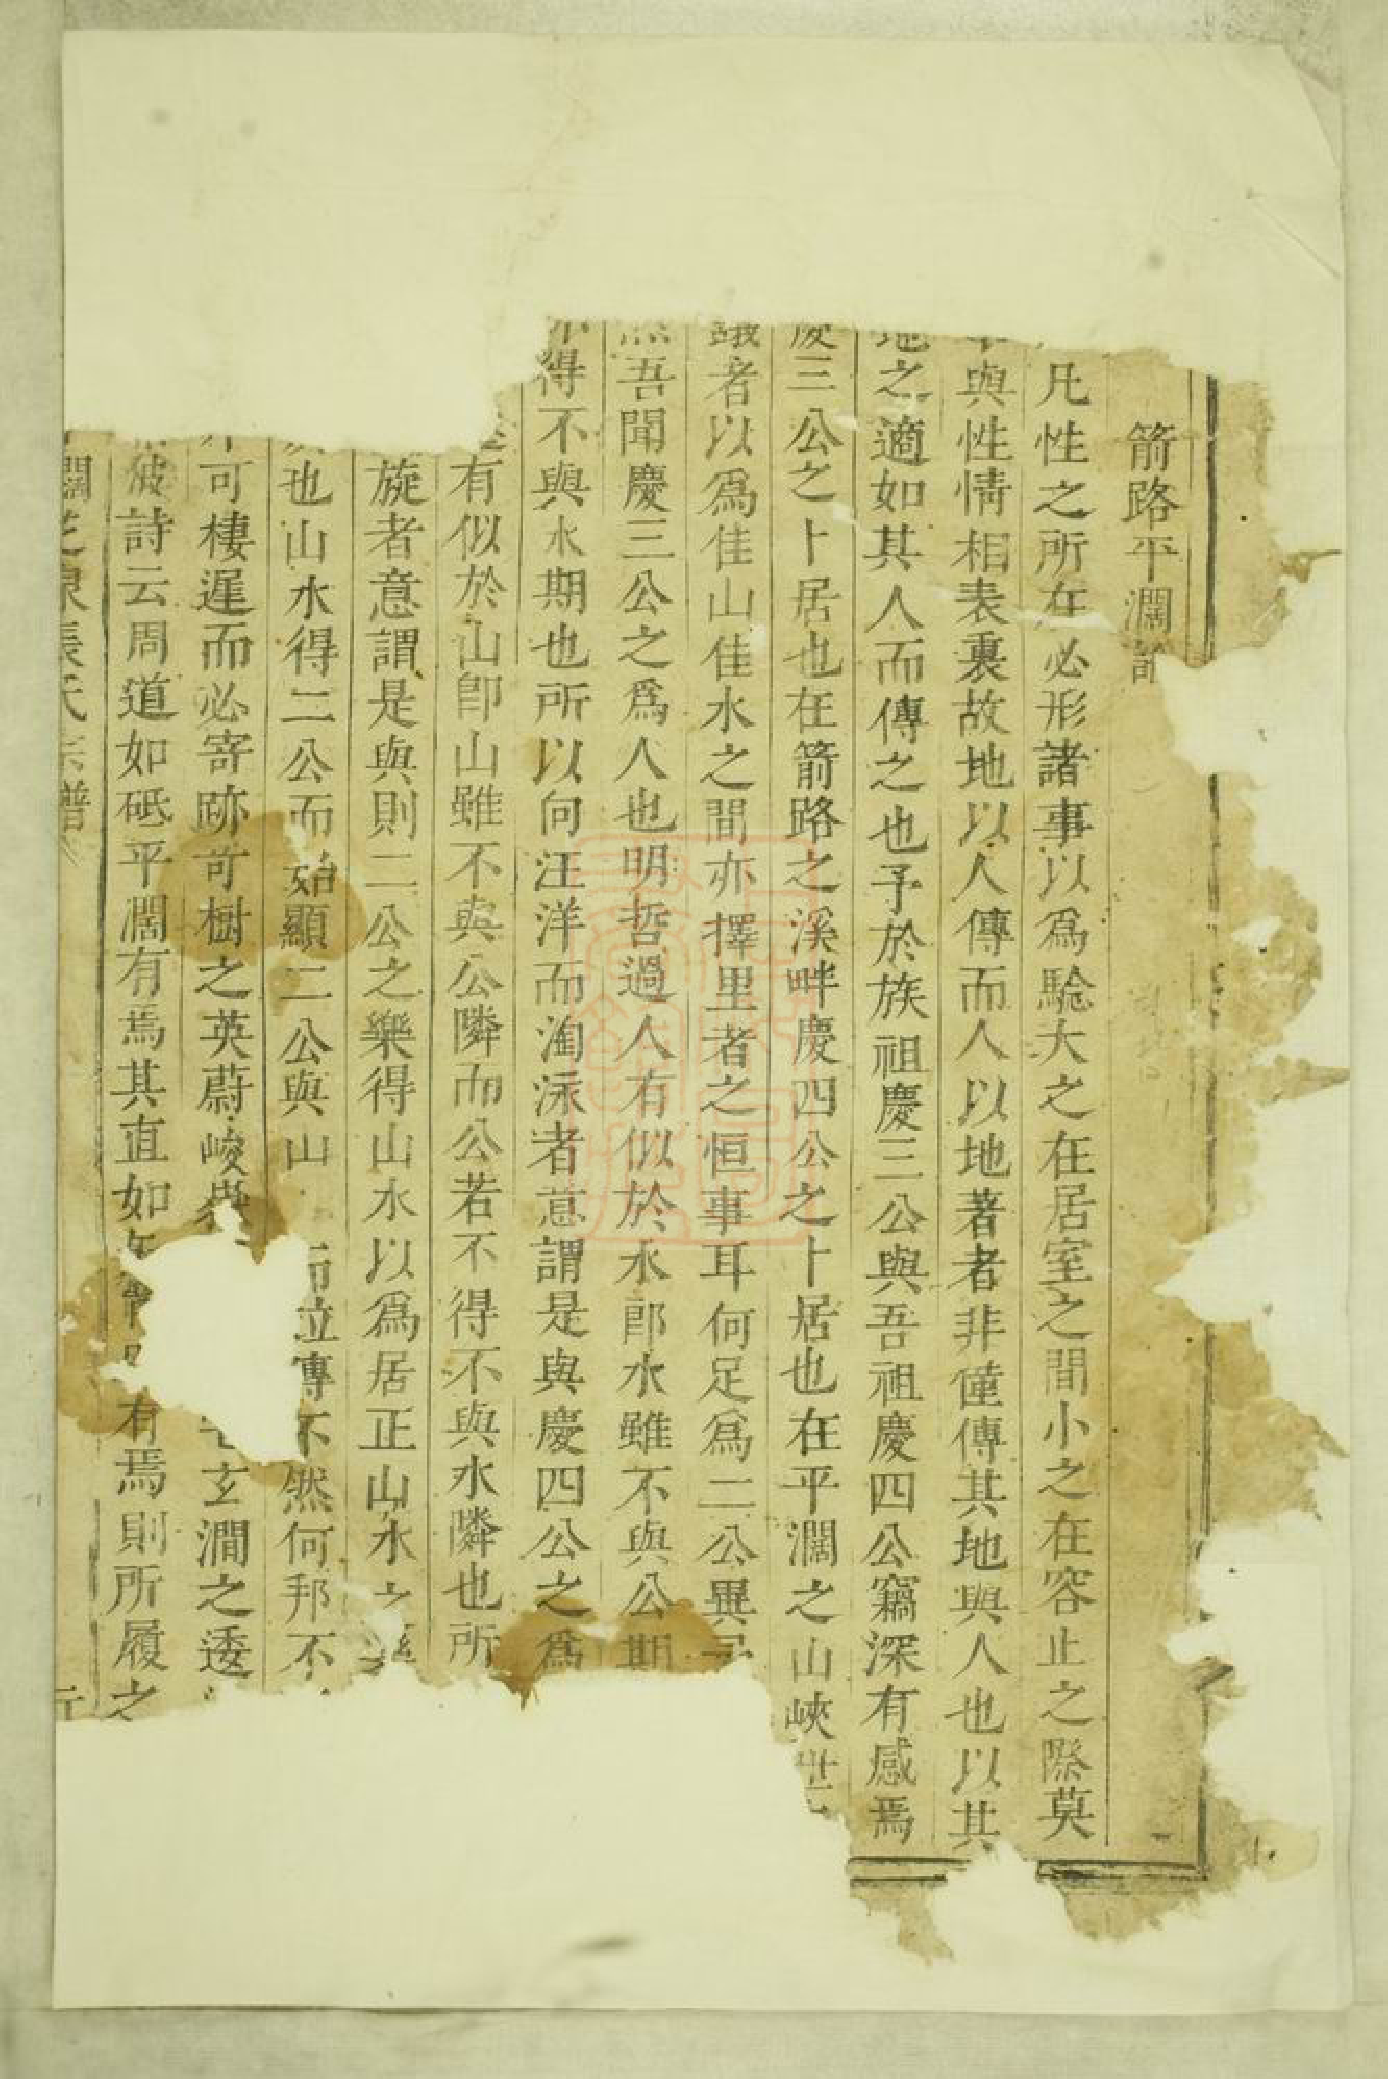 箭路平濶
凡性之所在必形諸事以爲驗大之在居室之間小之在容止之際莫
與性情相表裏故地以人傳而人以地著者非僅傳其地與人也以其
地之適如其人而傳之也予於族祖慶三公與吾祖慶四公竊深有感焉
慶三公之卜居也在箭路之溪畔慶四公之卜居也在平濶之山峽世
者以爲佳山佳水之間亦擇里者之恒事耳何足爲二公異
吾聞慶三公之爲人也明哲過人有似於水卽水雖不與公期
得不與水期也所以向汪洋而淘泳者意謂是與慶四公之爲
有似於山卽山雖不與公隣而公若不得不與水隣也所
旋者意謂是與則二公之樂得山水以爲居正山水之
也山水得二公而始顯二公與山而竝傳不然何邦不
可棲遲而必寄跡箭樹之英蔚峻玄澗之逶
波詩云周道如砥平濶有焉其直如有焉則所履之
張氏宗譜